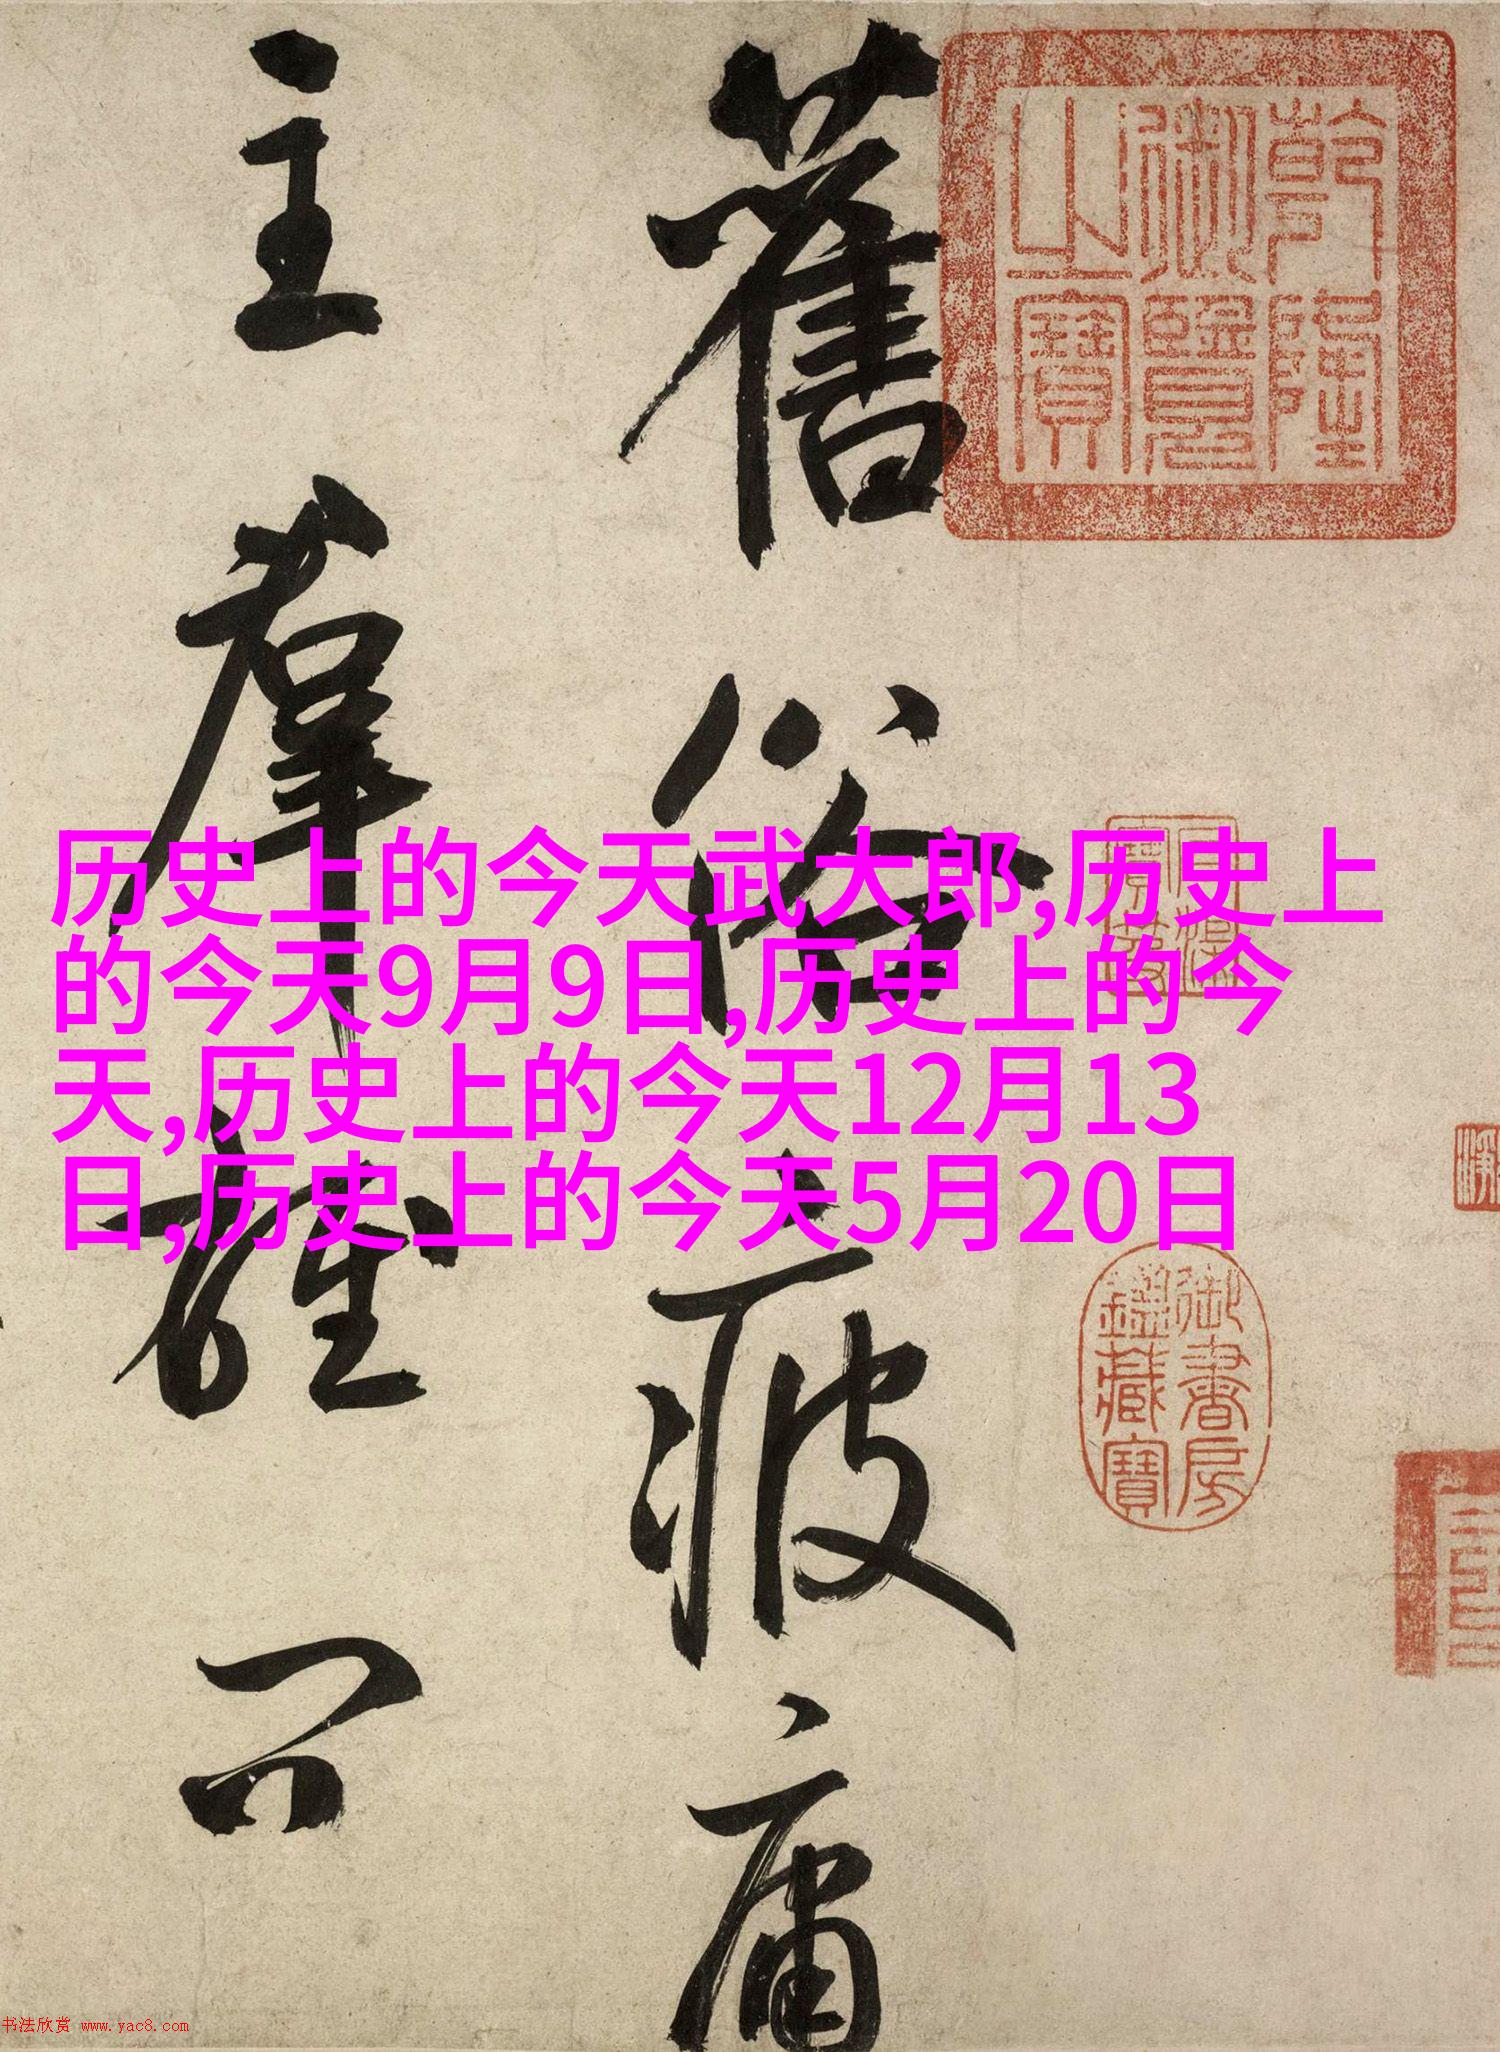 舊俗疲庸
主羣雄只
乾隆
御覽
之寶
御書房
鑑藏寶
历史上的今天武大郎,历史上
的今天9月9日,历史上的今
天,历史上的今天12月13
日,历史上的今天5月20日
书法欣赏 www.yac8.com